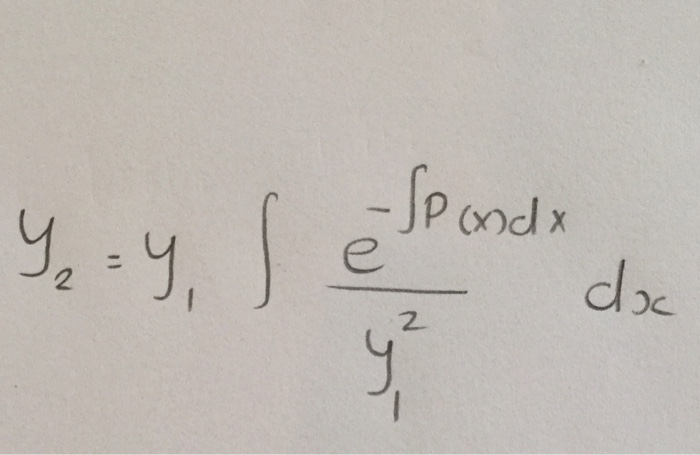 y₂ = y₁ ∫ e^(-∫P(x)dx) / y₁² dx